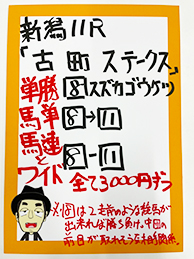 新潟11R
「古町ステークス」
単勝 8 スズカゴウケツ
馬単 8→11
馬連とワイド 8-11
全て3,000円ずつ
※8は2走前のような競馬が
出来れば勝ち負け。中団の
前目が取れそうな相関関係。